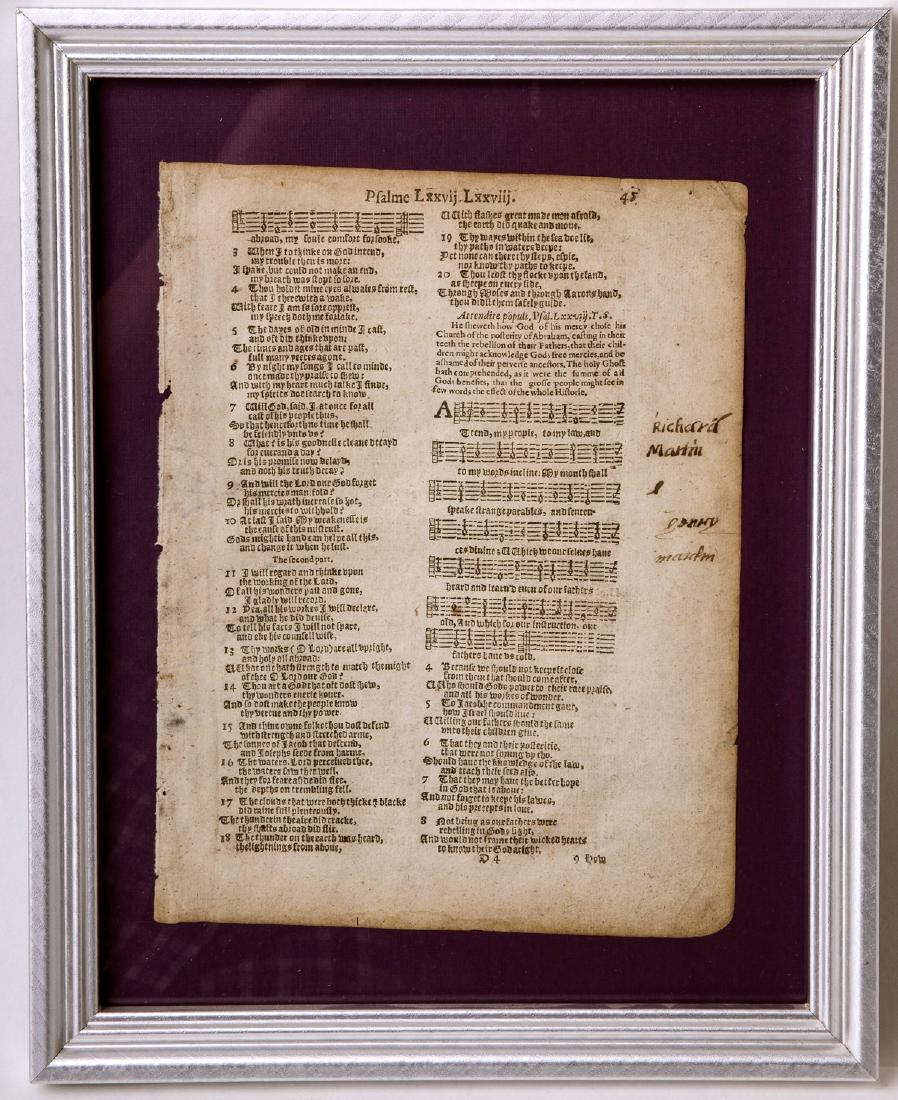 Psalme Lxxvij. Lxxviij.
45
abroad, my soule comfort forsooke.
3 When I to thinke on God intend,
my trouble then is more:
I spake, but could not make an end,
my breath was stopt so sore.
4 Thou holdst mine eyes alwaies from rest,
that I therewith awake.
With feare I am so sore opprest,
my speech doth me forsake.
5 The dayes of old in minde I cast,
and oft did thinke vpon:
The times and ages that are past,
full many yeeres agone.
6 By night my songs I call to minde,
once made thy praise to shew:
And with my heart much talke I finde,
my spirites doe search to know.
7 Will God, said I, at once for all
cast off his people thus,
So that henceforth no time he shall
be friendly vnto vs?
8 What? is his goodnesse cleane decayd
for euer and a day?
Or is his promise now delayd,
and doth his truth decay?
9 And will the Lord our God forget
his mercies manifold?
Or shall his wrath increase so hot,
his mercies to withhold?
10 At last I said, My weakenesse is
the cause of this mistrust.
Gods mightie hand can helpe all this,
and change it when he lust.
The second part.
11 I will regard and thinke vpon
the working of the Lord,
Of all his wonders past and gone,
I gladly will record.
12 Yea, all his workes I will declare,
and what he did deuise,
To tell his facts I will not spare,
and eke his counsell wise.
13 Thy works (O Lord) are all vpright,
and holy all abroad:
What one hath strength to match the might
of thee O Lord our God?
14 Thou art a God that oft dost shew,
thy wonders euerie houre.
And so dost make the people know
thy vertue and thy power.
15 And thine owne folke thou dost defend
with strength and stretched arme,
The sonnes of Iacob that descend,
and Iosephs seede from harme.
16 The waters, Lord perceiued thee,
the waters saw thee well.
And they for feare aside did flee,
the depths on trembling fell.
17 The clouds that were both thicke & blacke
did raine full plenteously.
The thunder in the aire did cracke,
thy shafts abroad did flie.
18 The thunder on the earth was heard,
the lightnings from aboue,
With flashes great made men afraid,
the earth did quake and moue.
19 Thy wayes within the sea doe lie,
thy paths in waters deepe:
Yet none can there thy steps espie,
nor know thy paths to keepe.
20 Thou ledst thy flocke vpon the land,
as sheepe on euery side,
Through Moses and through Aarons hand,
thou didst them safely guide.
Attendite populi, Psal. Lxxviij. T. S.
He sheweth how God of his mercy chose his
Church of the posterity of Abraham, casting in their
teeth the rebellion of their Fathers, that their chil-
dren might acknowledge Gods free mercies, and be
ashamed of their perverse ancestors. The holy Ghost
hath comprehended, as it were the summe of all
Gods benefits, that the grosse people might see in
few words the effect of the whole Historie.
A
Ttend, my people, to my law, and
to my words incline: My mouth shall
speake strange parables, and senten-
ces diuine: Which we our selues haue
heard and learn'd euen of our fathers
old, And which for our instruction, our
fathers haue vs told.
4 Because we should not keepe it close
from them that should come after,
Who should Gods power to their race praise,
and all his workes of wonder.
5 To Iacob he commandement gaue,
how Israel should liue:
Willing our fathers should the same
vnto their children giue.
6 That they and their posteritie,
that were not sprung vp tho,
Should haue the knowledge of the law,
and teach their seed also.
7 That they may haue the better hope
in God that is aboue:
And not forget to keepe his lawes,
and his precepts in loue.
8 Not being as our fathers were
rebelling in Gods sight,
And would not frame their wicked hearts
to know their God aright.
D 4
9 How
Richard
Martin